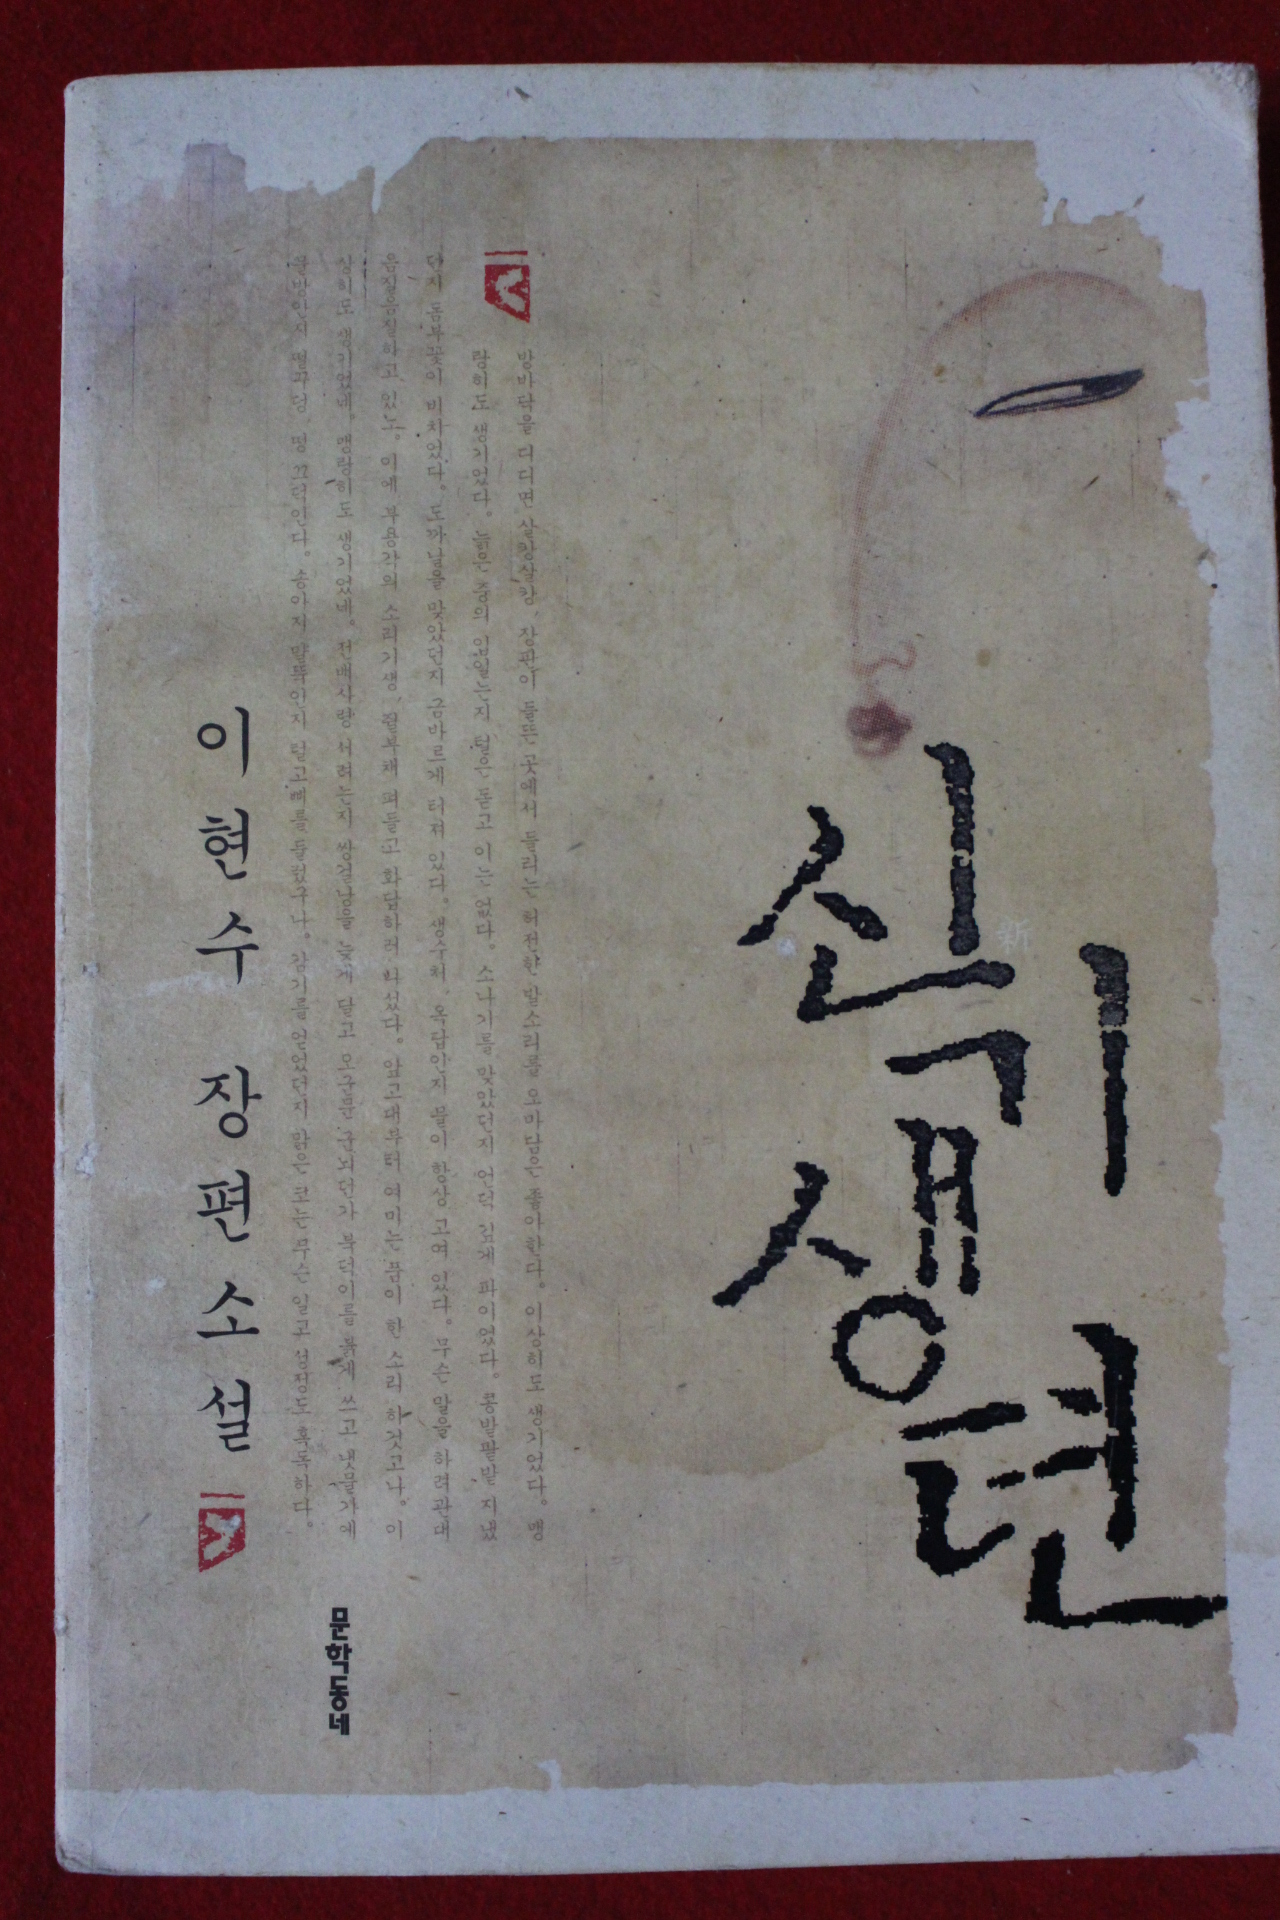 신기생뎐
新
방바닥을 디디면 살캉살캉, 장판이 들뜬 곳에서 들리는 허전한 발소리를 오마담은 좋아한다. 이상히도 생기었다. 맹
랑히도 생기었다. 늙은 중의 입일는지 털은 돋고 이는 없다. 소나기를 맞았던지 언덕 깊게 파이었다. 콩밭팥밭 지났
던지 돔부꽃이 비치었다. 도끼날을 맞았던지 금바르게 터져 있다. 생수처, 옥답인지 물이 항상 고여 있다. 무슨 말을 하려관대
옴질옴질하고 있노. 이에 부용각의 소리기생, 쥘부채 펴들고 화답하러 나섰다. 앞고대부터 여미는 품이 한 소리 하것고나. 이
상히도 생기었네. 맹랑히도 생기었네. 전배사령 서려는지 쌍걸낭을 늦게 달고 오군문 군뇌던가 복덕이를 붉게 쓰고 냇물가에
물방안지 떨구덩 떵 끄덕인다. 송아지 말뚝인지 털고삐를 둘렀구나. 감기를 얻었던지 맑은 코는 무슨 일고 성정도 혹독하다.
이현수 장편소설
문학동네